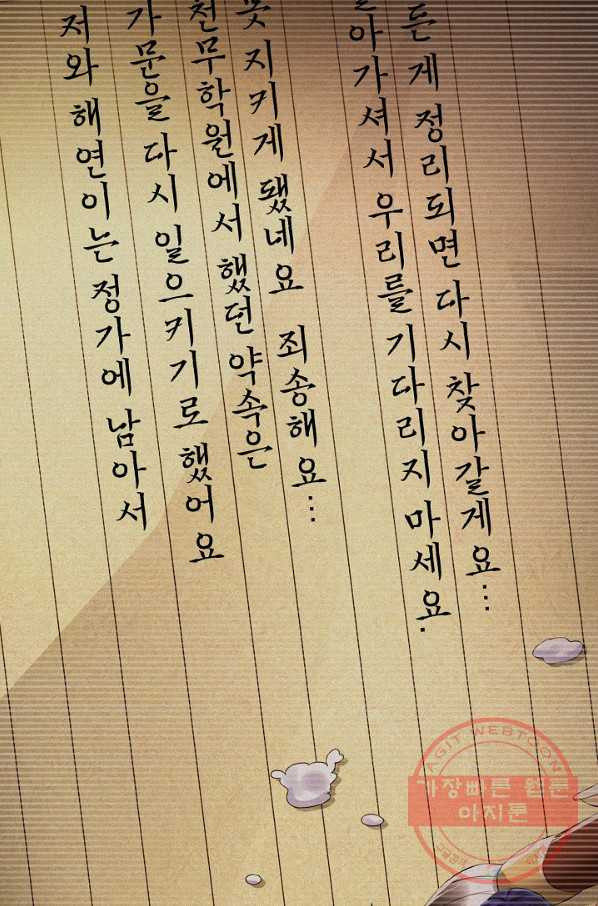 저와 해연이는 정가에 남아서
가문을 다시 일으키기로 했어요
천무학원에서 했던 약속은
못 지키게 됐네요 죄송해요…
아가셔서 우리를 기다리지 마세요.
든 게 정리되면 다시 찾아갈게요…
AGIT WEBTOON
가장빠른 웹툰
아지툰